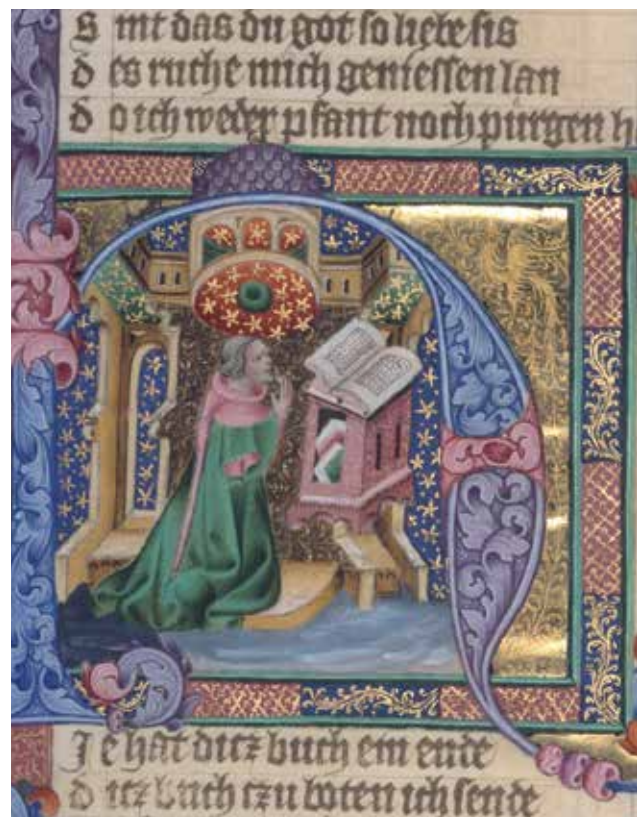 S int das du got so liebe sis
d es ruche mich geniessen lan
d o ich weder pfant noch pürgen h
J e hat ditz buch ein ende
d itz buch czu boten ich sende